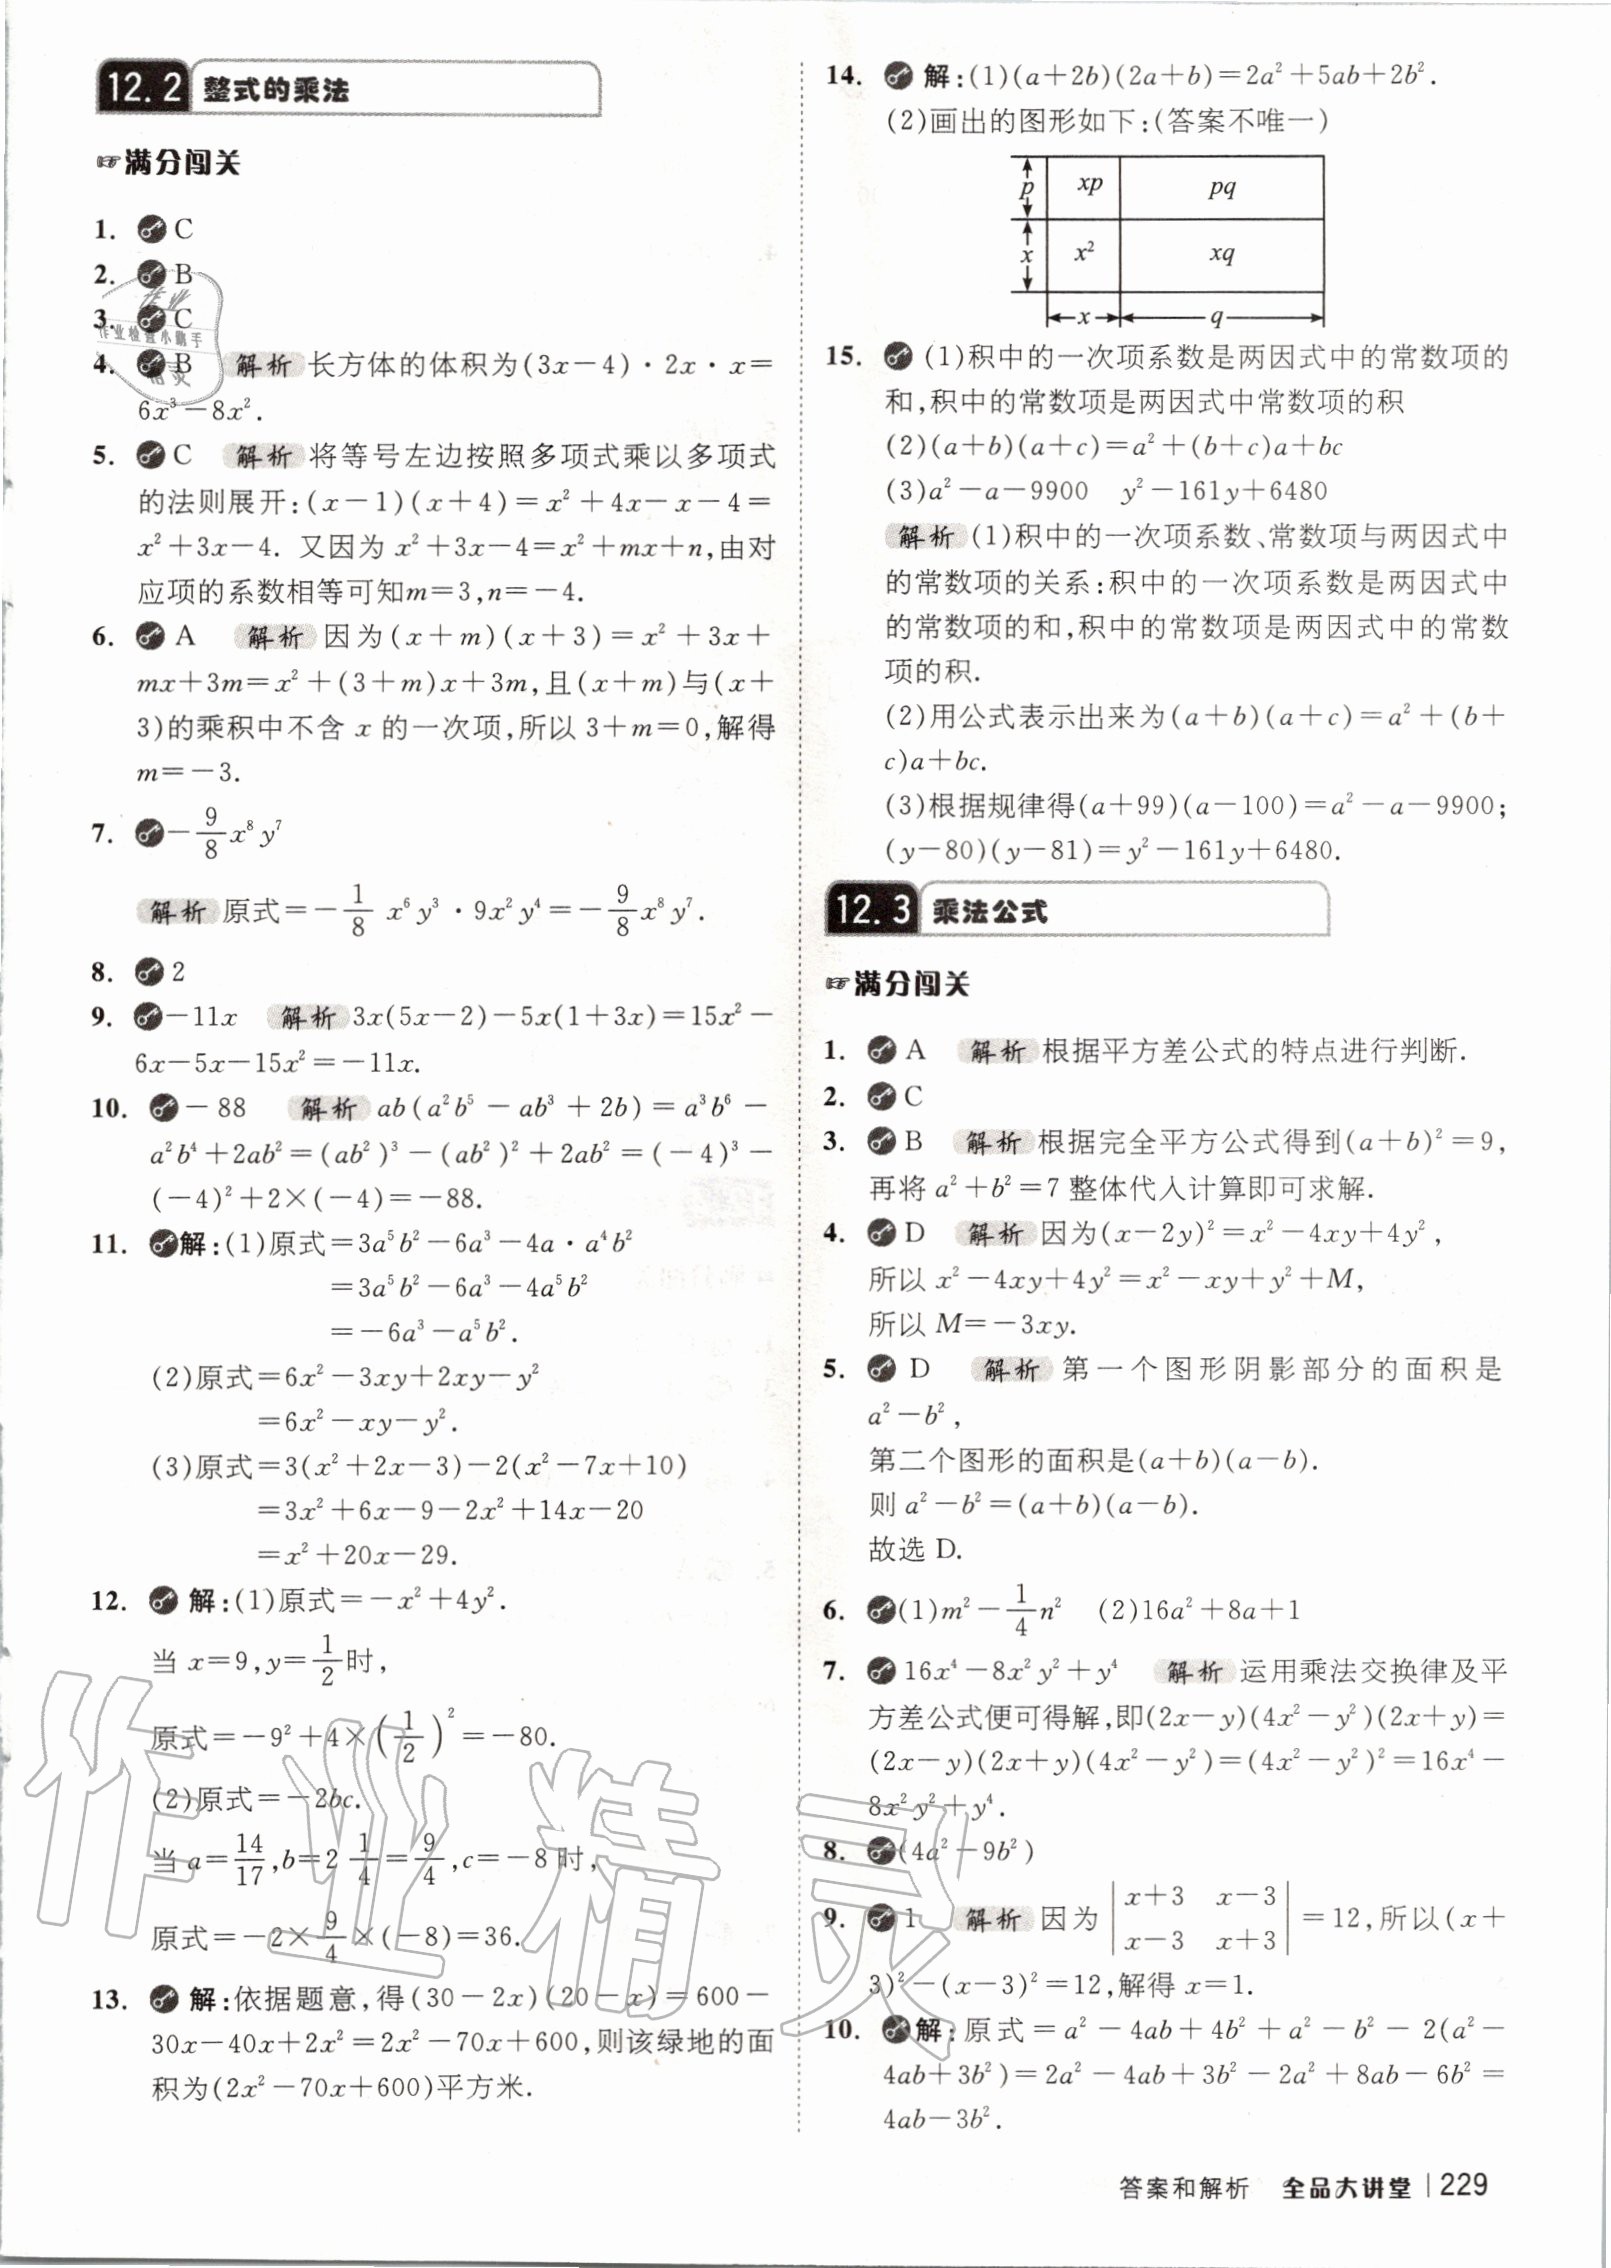 12.2 整式的乘法
☞满分闯关
1. C
2. B
3. C
4. B 解析 长方体的体积为(3x－4)·2x·x＝
6x³－8x².
5. C 解析 将等号左边按照多项式乘以多项式
的法则展开:(x－1)(x＋4)＝x²＋4x－x－4＝
x²＋3x－4. 又因为 x²＋3x－4＝x²＋mx＋n,由对
应项的系数相等可知m＝3,n＝－4.
6. A 解析 因为(x＋m)(x＋3)＝x²＋3x＋
mx＋3m＝x²＋(3＋m)x＋3m,且(x＋m)与(x＋
3)的乘积中不含 x 的一次项,所以 3＋m＝0,解得
m＝－3.
7. －9/8 x⁸y⁷
解析 原式＝－1/8 x⁶y³·9x²y⁴＝－9/8 x⁸y⁷.
8. 2
9. －11x 解析 3x(5x－2)－5x(1＋3x)＝15x²－
6x－5x－15x²＝－11x.
10. －88 解析 ab(a²b⁵－ab³＋2b)＝a³b⁶－
a²b⁴＋2ab²＝(ab²)³－(ab²)²＋2ab²＝(－4)³－
(－4)²＋2×(－4)＝－88.
11. 解:(1)原式＝3a⁵b²－6a³－4a·a⁴b²
＝3a⁵b²－6a³－4a⁵b²
＝－6a³－a⁵b².
(2)原式＝6x²－3xy＋2xy－y²
＝6x²－xy－y².
(3)原式＝3(x²＋2x－3)－2(x²－7x＋10)
＝3x²＋6x－9－2x²＋14x－20
＝x²＋20x－29.
12. 解:(1)原式＝－x²＋4y².
当 x＝9,y＝1/2时,
原式＝－9²＋4×(1/2)²＝－80.
(2)原式＝－2bc.
当 a＝14/17,b＝2 1/4＝9/4,c＝－8时,
原式＝－2×9/4×(－8)＝36.
13. 解:依据题意,得(30－2x)(20－x)＝600－
30x－40x＋2x²＝2x²－70x＋600,则该绿地的面
积为(2x²－70x＋600)平方米.
14. 解:(1)(a＋2b)(2a＋b)＝2a²＋5ab＋2b².
(2)画出的图形如下:(答案不唯一)
p xp pq
x x² xq
x q
15. (1)积中的一次项系数是两因式中的常数项的
和,积中的常数项是两因式中常数项的积
(2)(a＋b)(a＋c)＝a²＋(b＋c)a＋bc
(3)a²－a－9900 y²－161y＋6480
解析 (1)积中的一次项系数、常数项与两因式中
的常数项的关系:积中的一次项系数是两因式中
的常数项的和,积中的常数项是两因式中的常数
项的积.
(2)用公式表示出来为(a＋b)(a＋c)＝a²＋(b＋
c)a＋bc.
(3)根据规律得(a＋99)(a－100)＝a²－a－9900;
(y－80)(y－81)＝y²－161y＋6480.
12.3 乘法公式
☞满分闯关
1. A 解析 根据平方差公式的特点进行判断.
2. C
3. B 解析 根据完全平方公式得到(a＋b)²＝9,
再将 a²＋b²＝7 整体代入计算即可求解.
4. D 解析 因为(x－2y)²＝x²－4xy＋4y²,
所以 x²－4xy＋4y²＝x²－xy＋y²＋M,
所以 M＝－3xy.
5. D 解析 第一个图形阴影部分的面积是
a²－b²,
第二个图形的面积是(a＋b)(a－b).
则 a²－b²＝(a＋b)(a－b).
故选 D.
6. (1)m²－1/4 n² (2)16a²＋8a＋1
7. 16x⁴－8x²y²＋y⁴ 解析 运用乘法交换律及平
方差公式便可得解,即(2x－y)(4x²－y²)(2x＋y)＝
(2x－y)(2x＋y)(4x²－y²)＝(4x²－y²)²＝16x⁴－
8x²y²＋y⁴.
8. (4a²－9b²)
9. 1 解析 因为 |x＋3 x－3|
|x－3 x＋3| ＝12,所以(x＋
3)²－(x－3)²＝12,解得 x＝1.
10. 解:原式＝a²－4ab＋4b²＋a²－b²－2(a²－
4ab＋3b²)＝2a²－4ab＋3b²－2a²＋8ab－6b²＝
4ab－3b².
答案和解析 全品大讲堂 229
作业精灵
作业检查小助手